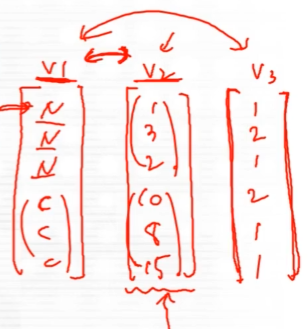 V1 V2 V3
N 1 1
N 3 2
N 2 1
C 10 2
C 8 1
C 15 1